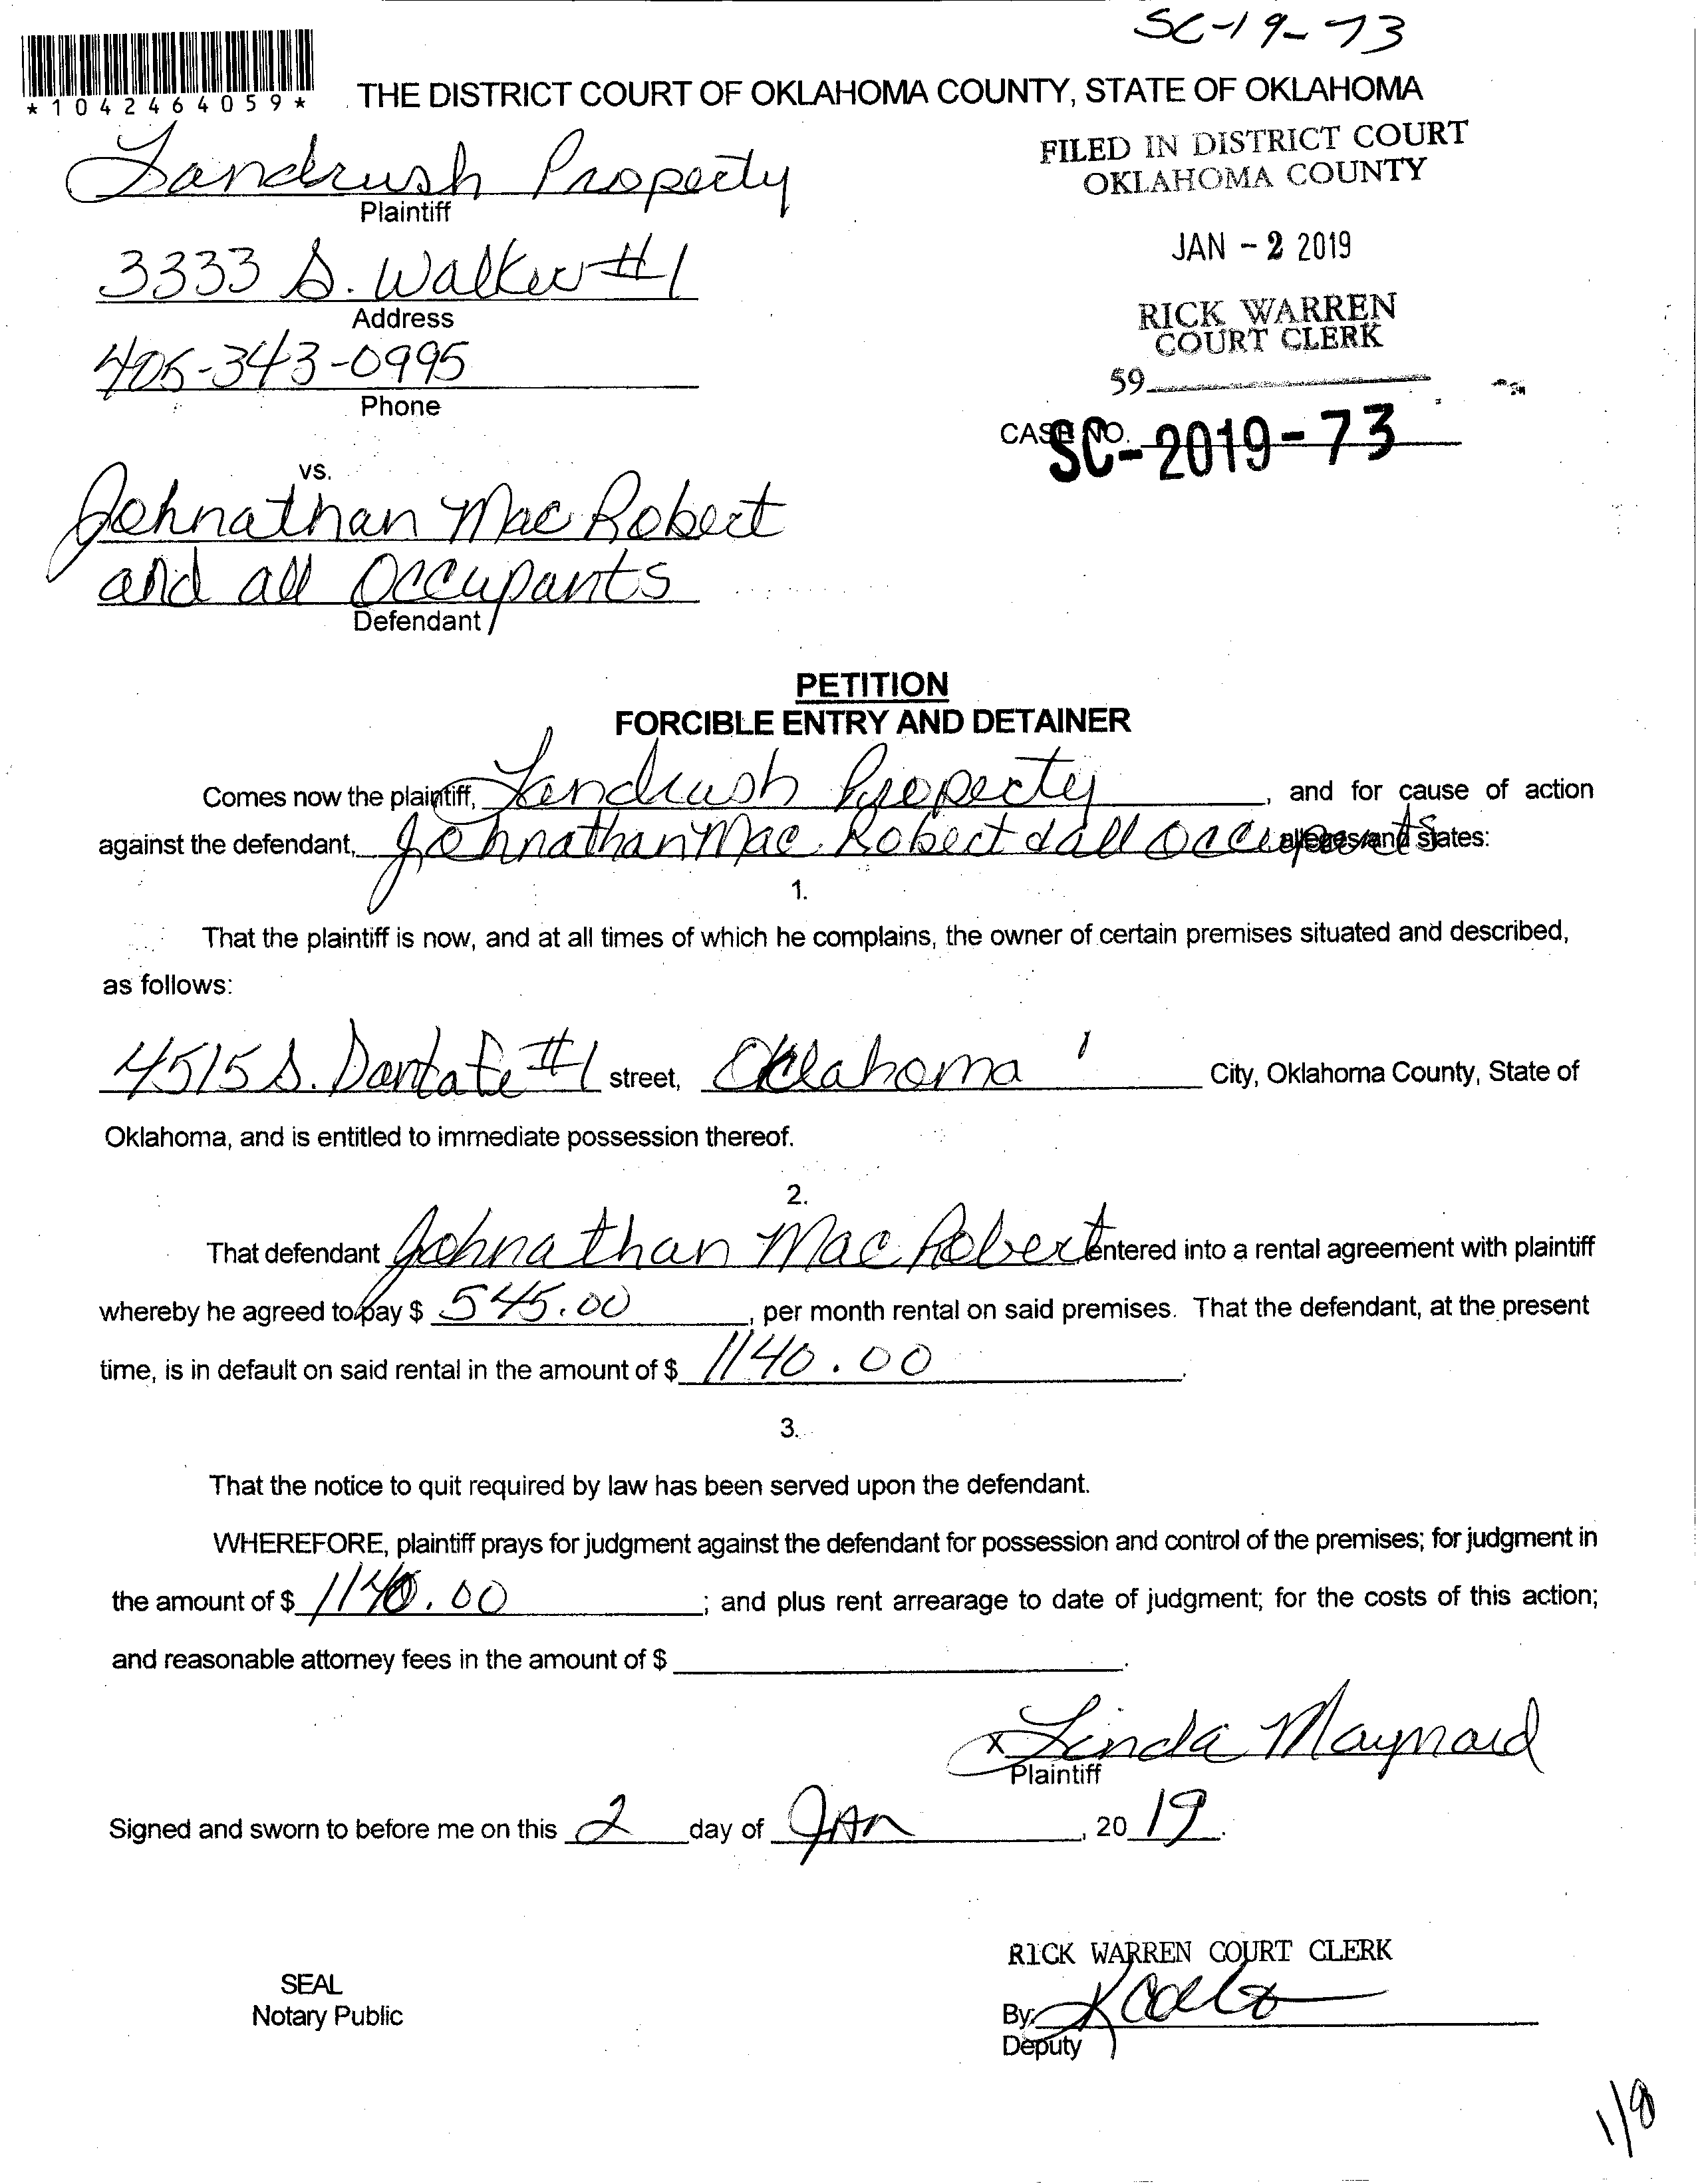 SC-19-73
*1042464059*
THE DISTRICT COURT OF OKLAHOMA COUNTY, STATE OF OKLAHOMA
Landrush Property
Plaintiff
FILED IN DISTRICT COURT
OKLAHOMA COUNTY
3333 S. Walker #1
Address
JAN - 2 2019
405-343-0995
Phone
RICK WARREN
COURT CLERK
59
CASE NO. SC-2019-73
vs.
Johnathan Mac Robert
and all Occupants
Defendant
PETITION
FORCIBLE ENTRY AND DETAINER
Comes now the plaintiff, Landrush Property, and for cause of action
against the defendant, Johnathan Mac Robert & all Occupants alleges and states:
1.
That the plaintiff is now, and at all times of which he complains, the owner of certain premises situated and described,
as follows:
4515 S. #1 street, Oklahoma City, Oklahoma County, State of
Oklahoma, and is entitled to immediate possession thereof.
2.
That defendant Johnathan Mac Robert entered into a rental agreement with plaintiff
whereby he agreed to pay $ 545.00, per month rental on said premises. That the defendant, at the present
time, is in default on said rental in the amount of $ 1140.00.
3.
That the notice to quit required by law has been served upon the defendant.
WHEREFORE, plaintiff prays for judgment against the defendant for possession and control of the premises; for judgment in
the amount of $ 1140.00; and plus rent arrearage to date of judgment; for the costs of this action;
and reasonable attorney fees in the amount of $
x Linda Maynard
Plaintiff
Signed and sworn to before me on this 2 day of JAn, 2019.
RICK WARREN COURT CLERK
SEAL
Notary Public
By:
Deputy
1/8